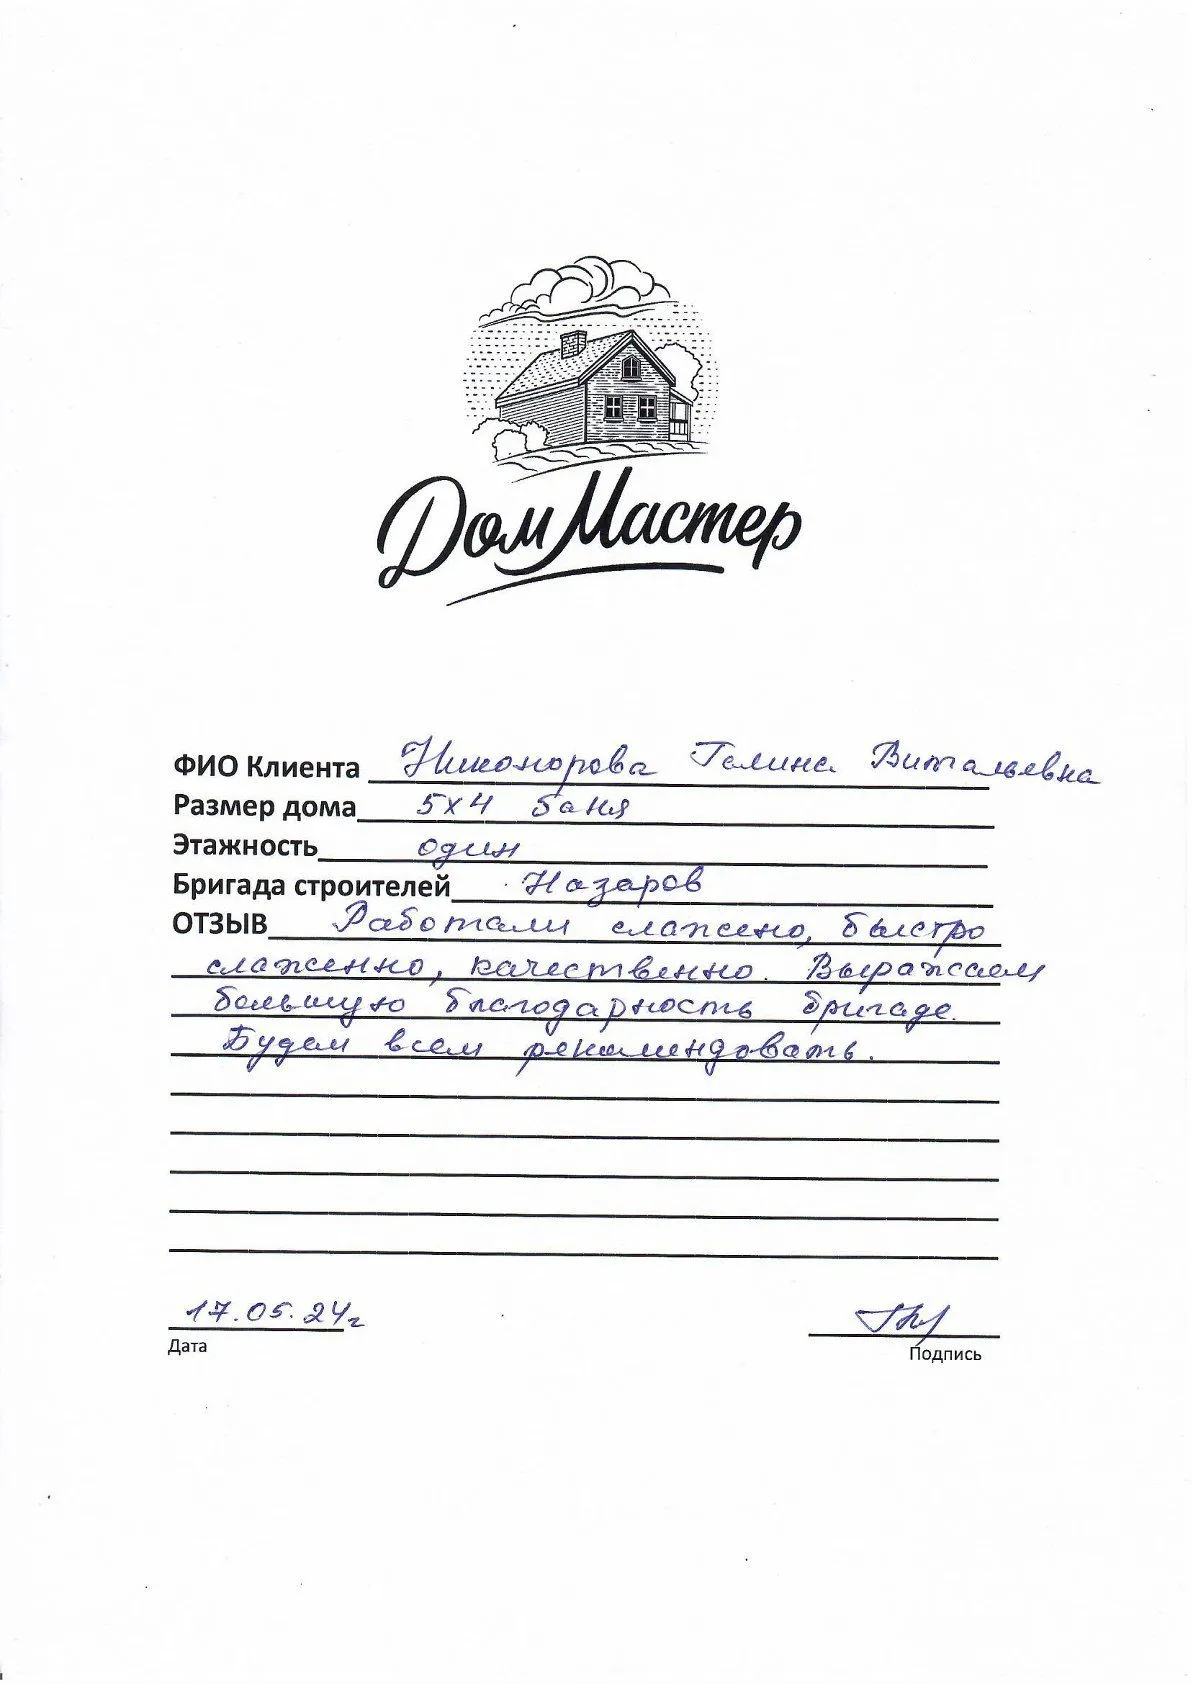 ДомМастер
ФИО Клиента Никонорова Галина Витальевна
Размер дома 5х4 баня
Этажность один
Бригада строителей Назаров
ОТЗЫВ Работали слажено, быстро
слаженно, качественно. Выражаем
большую благодарность бригаде.
Будем всем рекомендовать.
17.05.24г
Дата
Подпись